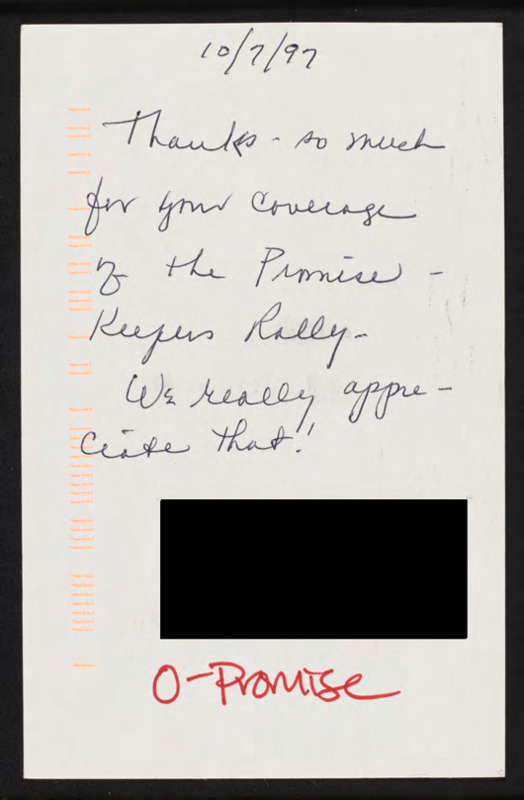 10/7/97
Thanks - so much
for your coverage
of the Promise -
Keepers Rally -
We really appre -
ciate that!
O-PROMISE